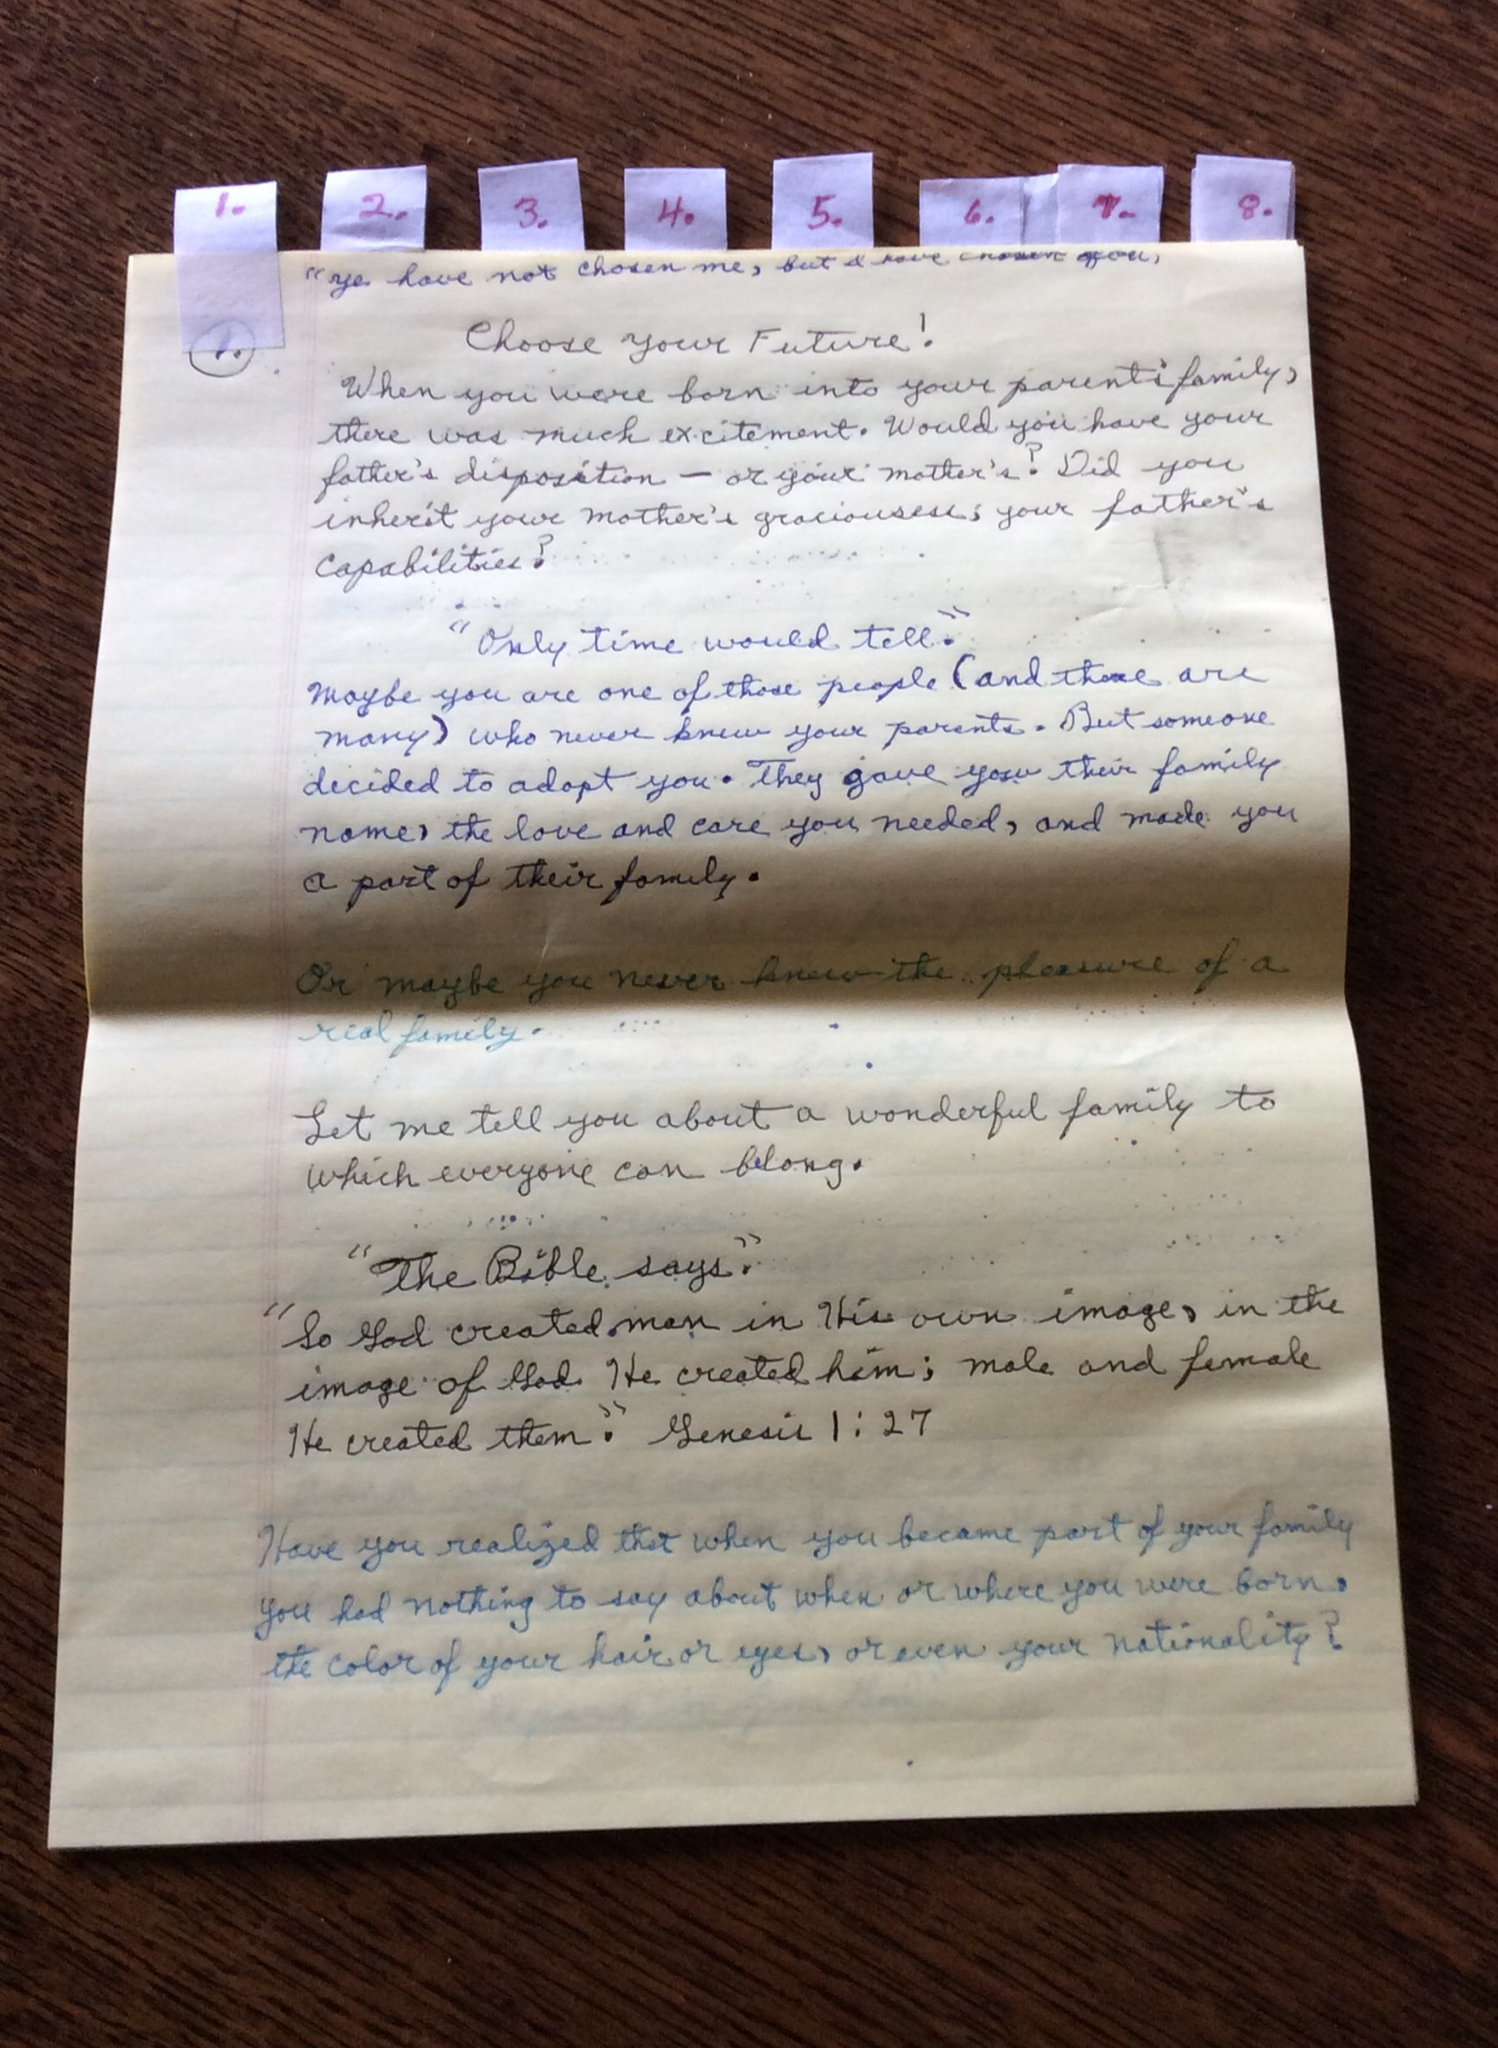 1. 2. 3. 4. 5. 6. 7. 8.
"Ye have not chosen me, but I have chosen you,
1.
Choose Your Future!
When you were born into your parent's family,
there was much excitement. Would you have your
father's disposition — or your mother's? Did you
inherit your mother's graciousess; your father's
capabilities?
"Only time would tell."
Maybe you are one of those people (and there are
many) who never knew your parents. But someone
decided to adopt you. They gave you their family
name, the love and care you needed, and made you
a part of their family.
Or maybe you never knew the pleasure of a
real family.
Let me tell you about a wonderful family to
which everyone can belong.
"The Bible says"
"So God created man in His own image, in the
image of God He created him; male and female
He created them." Genesis 1:27
Have you realized that when you became part of your family
you had nothing to say about when or where you were born,
the color of your hair or eyes, or even your nationality?